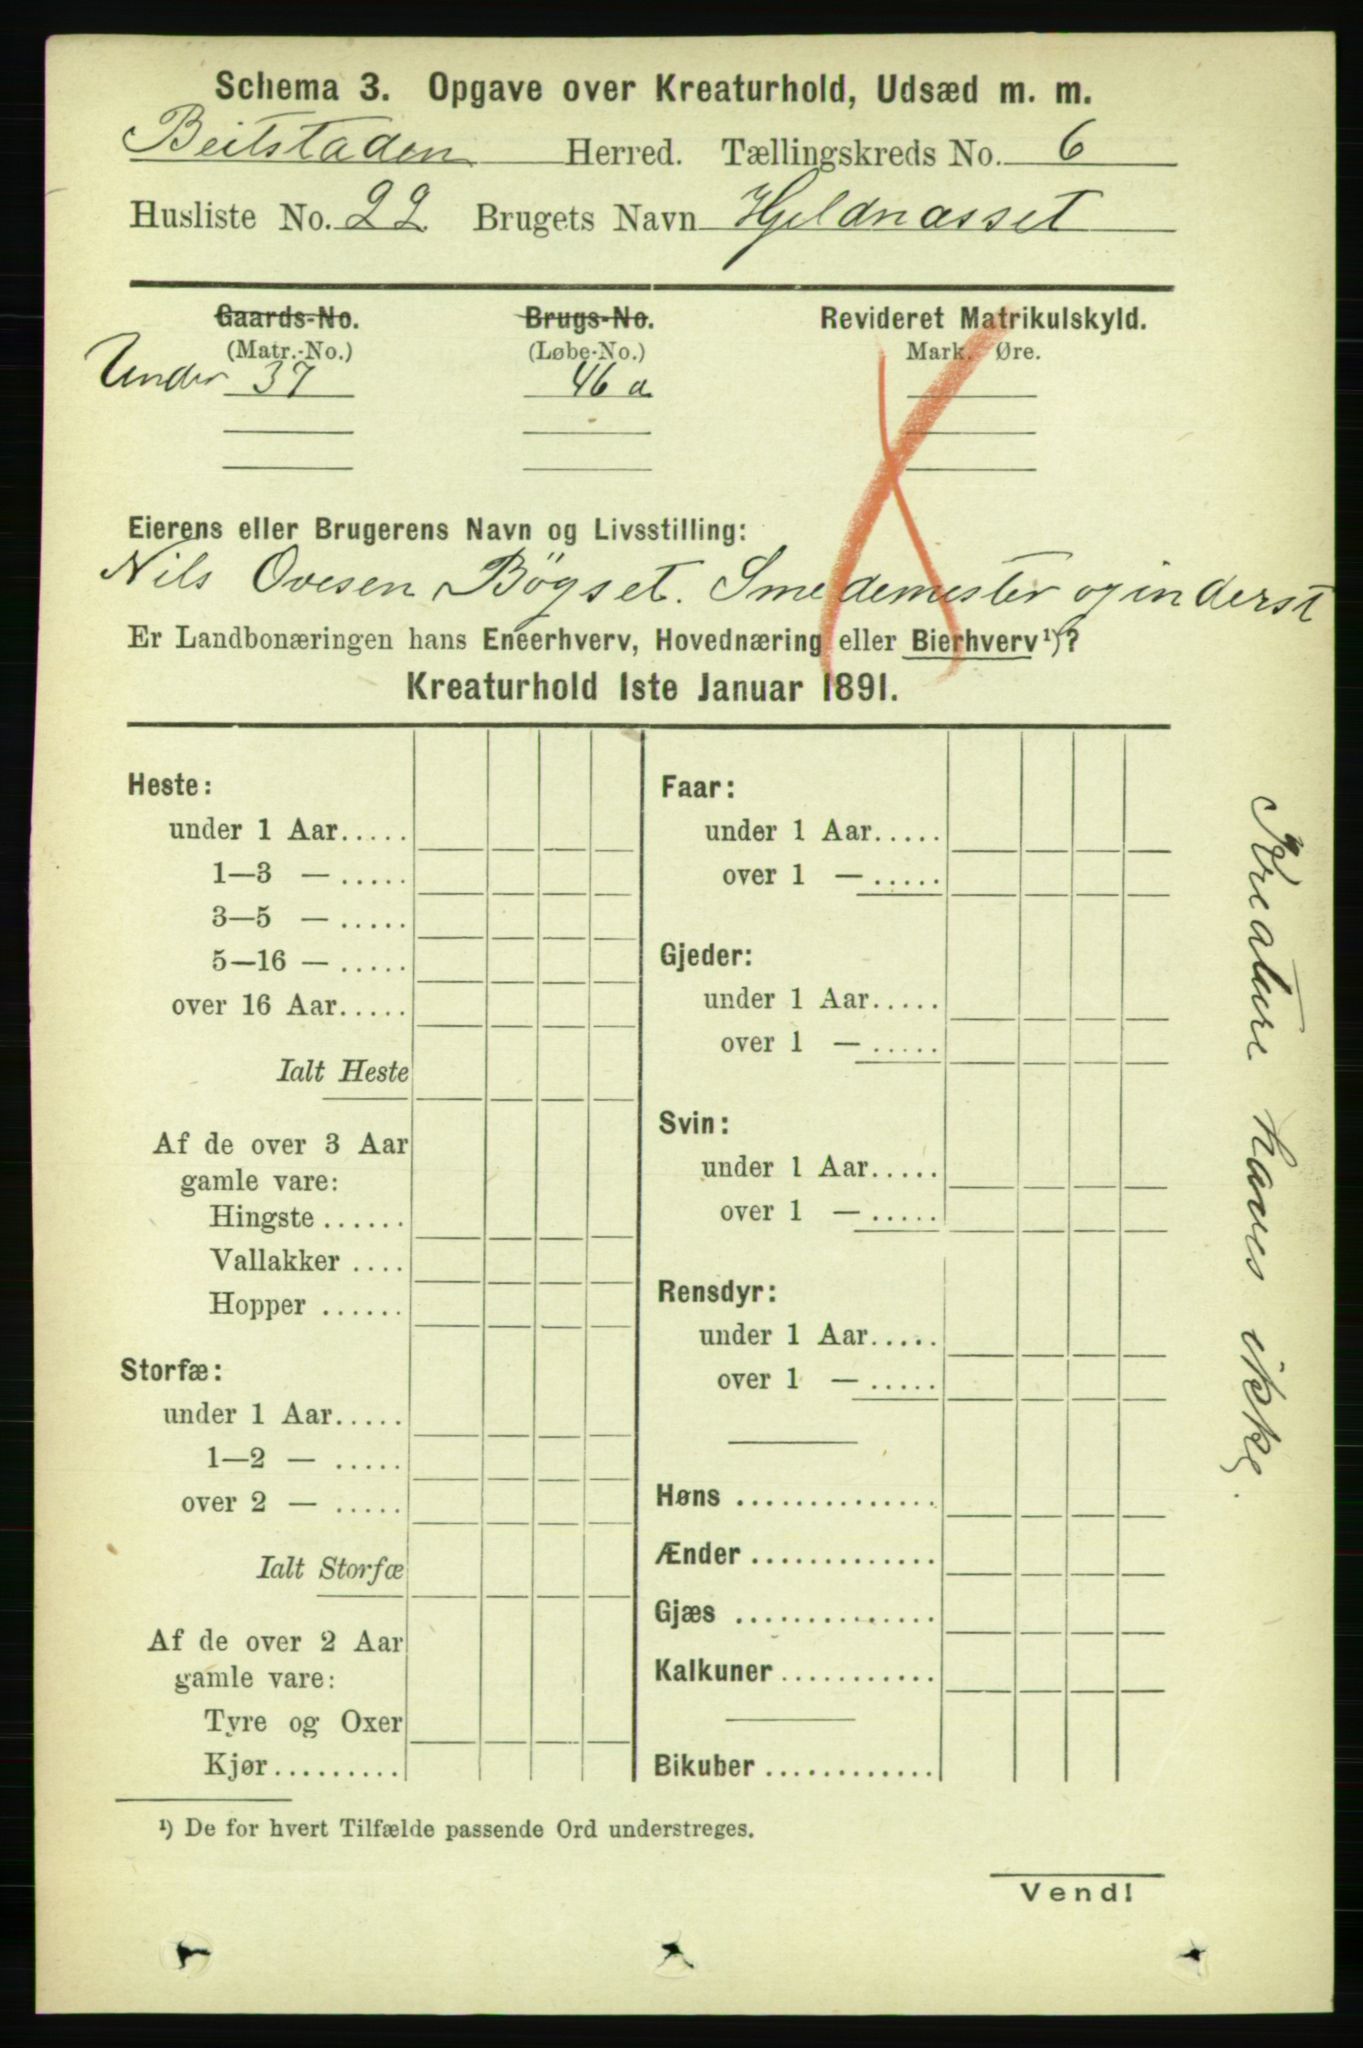 Schema 3. Opgave over Kreaturhold, Udsæd m. m.
Beitstaden Herred. Tællingskreds No. 6
Husliste No. 22 Brugets Navn Hjeldnæsset
Gaards-No. Brugs-No. Revideret Matrikulskyld.
(Matr.-No.) (Løbe-No.) Mark. Øre.
Under 37 46 a
Eierens eller Brugerens Navn og Livsstilling:
Nils Ovesen Bögset. Smedemester og inderst
Er Landbonæringen hans Eneerhverv, Hovednæring eller Bierhverv ¹)?
Kreaturhold 1ste Januar 1891.
Heste:
under 1 Aar.....
1—3 — .....
3—5 — .....
5—16 — .....
over 16 Aar.....
Ialt Heste
Af de over 3 Aar
gamle vare:
Hingste ......
Vallakker ....
Hopper ......
Storfæ:
under 1 Aar.....
1—2 — .....
over 2 — .....
Ialt Storfæ
Af de over 2 Aar
gamle vare:
Tyre og Oxer
Kjør.........
Faar:
under 1 Aar.....
over 1 — .....
Gjeder:
under 1 Aar.....
over 1 — .....
Svin:
under 1 Aar.....
over 1 — .....
Rensdyr:
under 1 Aar.....
over 1 — .....
Høns ..............
Ænder .............
Gjæs ..............
Kalkuner ...........
Bikuber ............
Kreature haves ikke.
¹) De for hvert Tilfælde passende Ord understreges.
Vend!